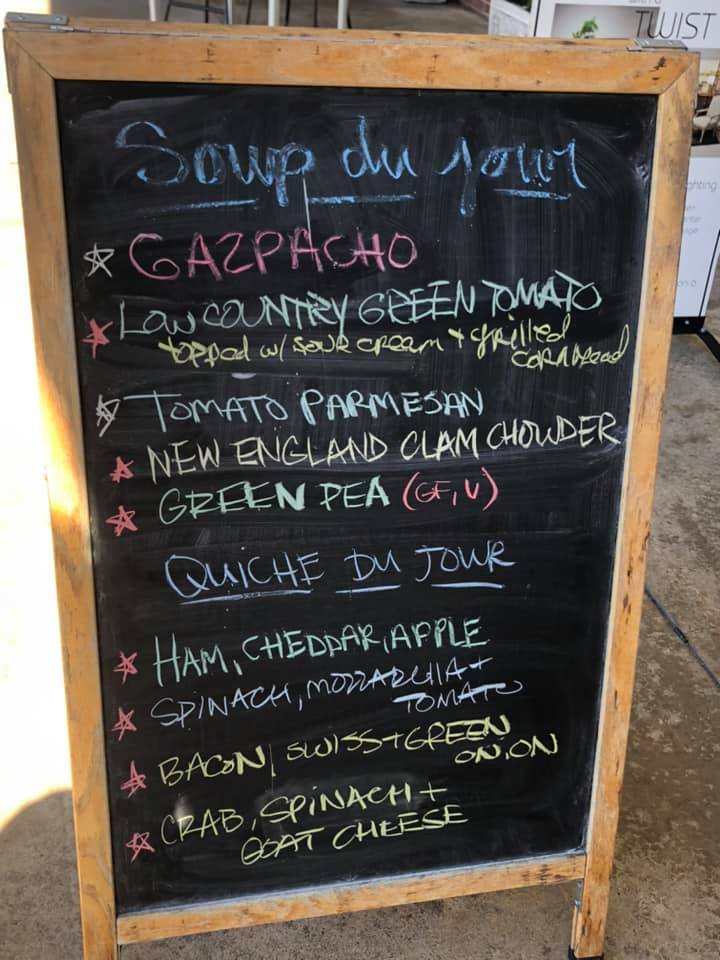 TWIST
Soup du jour
GAZPACHO
LOW COUNTRY GREEN TOMATO
topped w/ sour cream + grilled
cornbread
TOMATO PARMESAN
NEW ENGLAND CLAM CHOWDER
GREEN PEA (GF, V)
QUICHE DU JOUR
HAM, CHEDDAR, APPLE
SPINACH, MOZZARELLA +
TOMATO
BACON, SWISS + GREEN
ONION
CRAB, SPINACH +
GOAT CHEESE